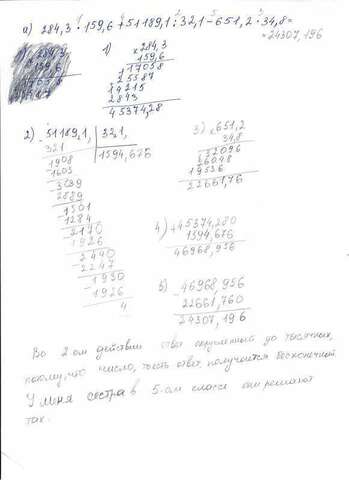 а) 284,3 · 159,6 + 51189,1 : 32,1 - 651,2 · 34,8 =
= 24307,196
1) × 284,3
159,6
17058
25587
14215
2843
45374,28
2) 51189,1 | 32,1
321 | 1594,676
1908
1605
3039
2889
1501
1284
2170
1926
2440
2247
1930
1926
4
3) × 651,2
34,8
52096
26048
19536
22661,76
4) + 45374,280
1594,676
46968,956
5) - 46968,956
22661,760
24307,196
Во 2-ом действии ответ округленный до тысячных,
потому, что число, то есть ответ получается бесконечный.
У меня сестра в 5-ом классе они решают
так.